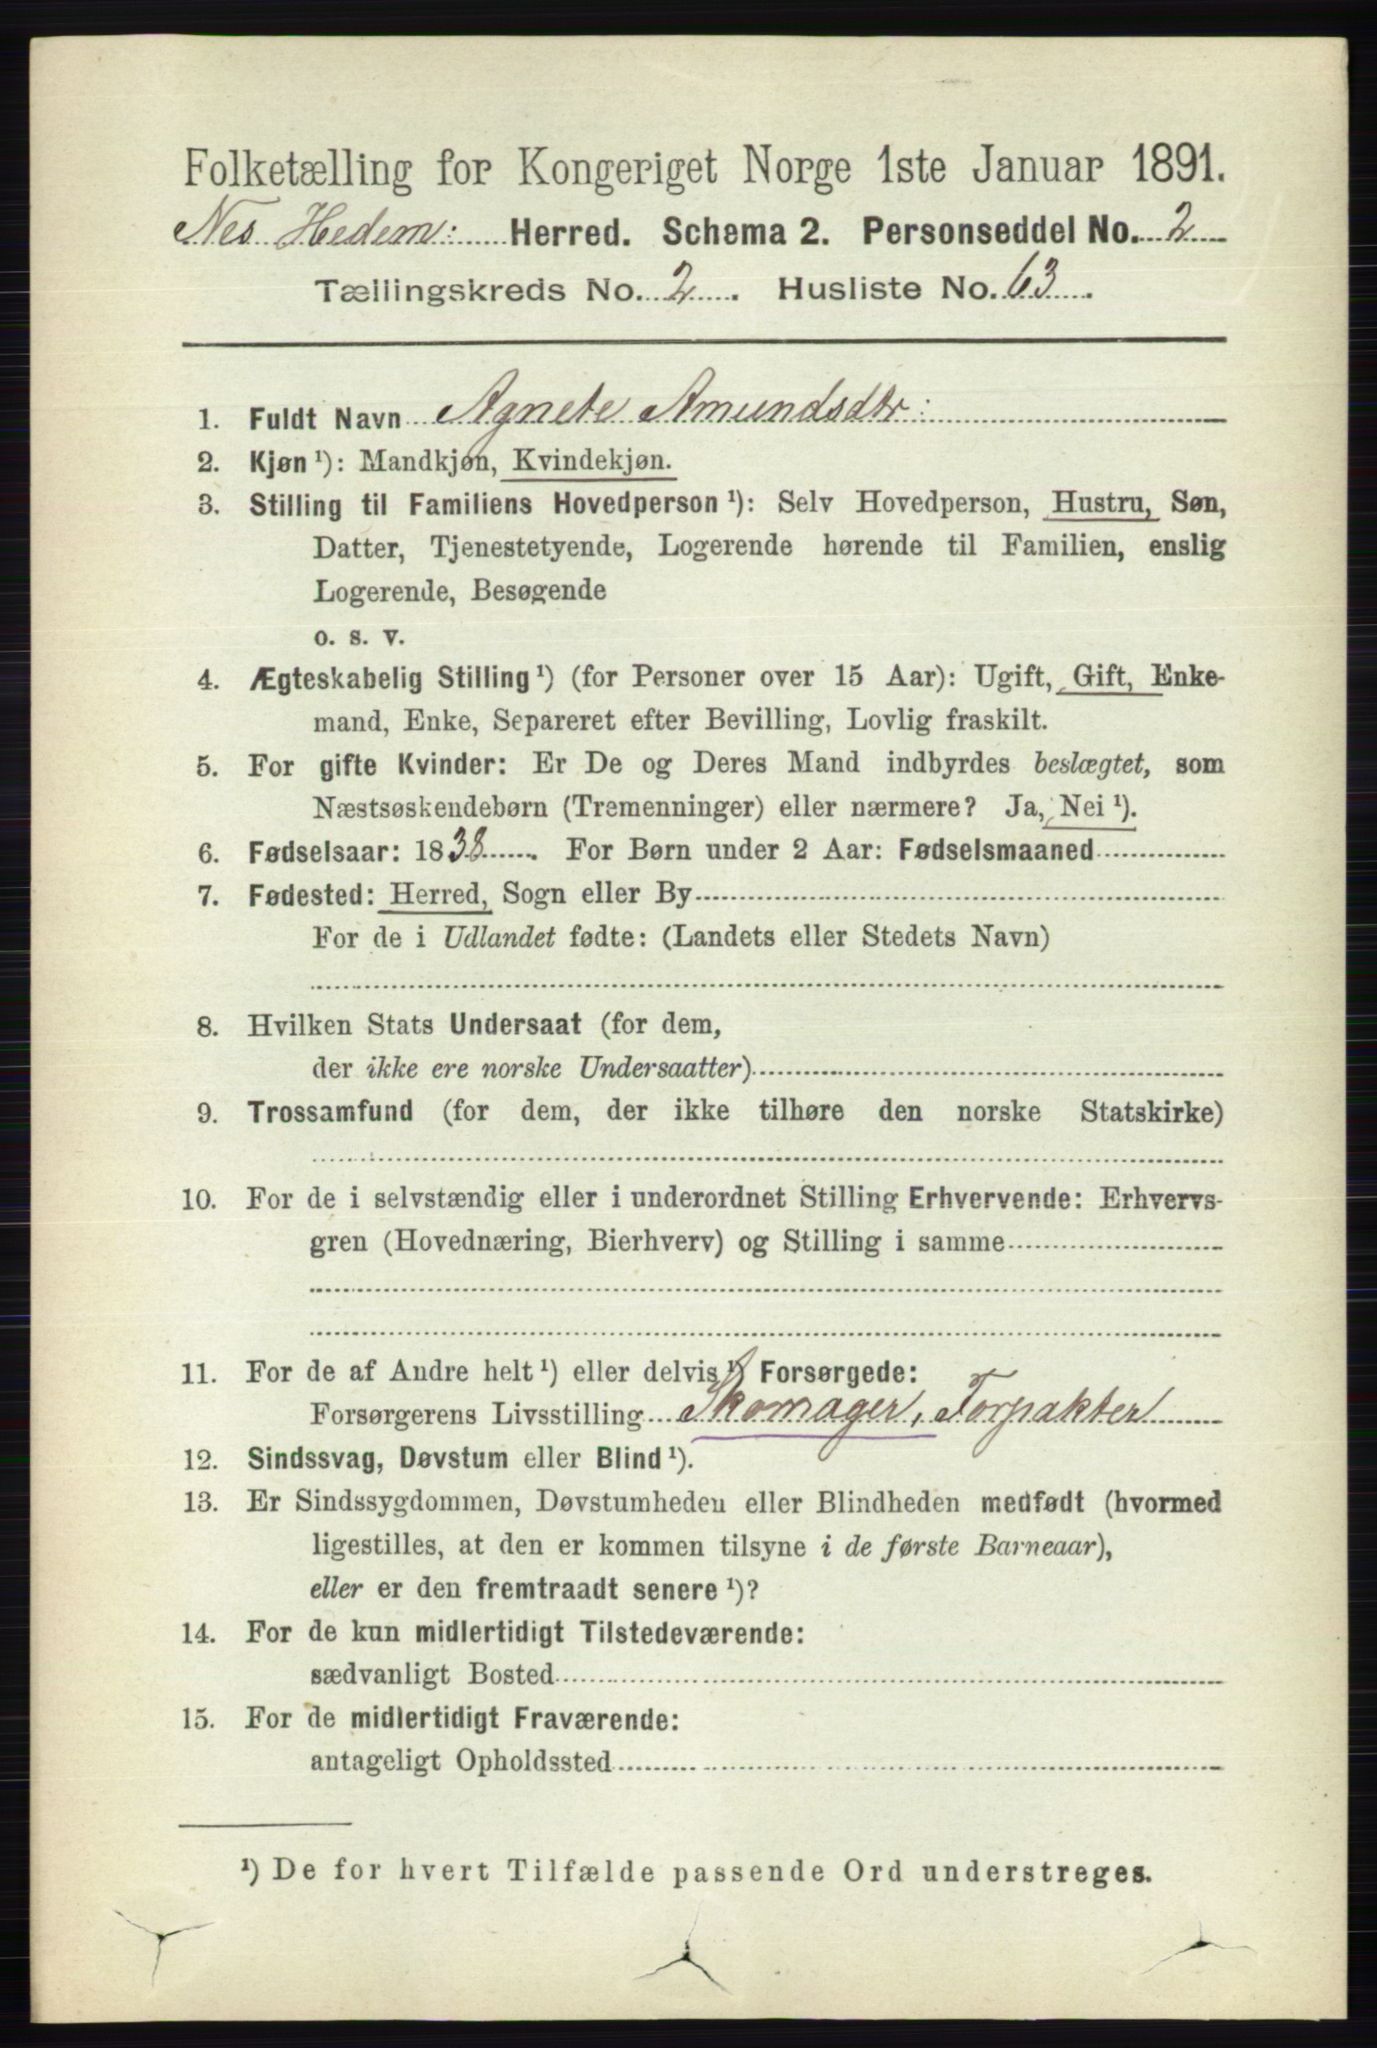 Folketælling for Kongeriget Norge 1ste Januar 1891.
Nes Hedem: Herred. Schema 2. Personseddel No. 2
Tællingskreds No. 2. Husliste No. 63.
1. Fuldt Navn Agnete Amundsdtr:
2. Kjøn ¹): Mandkjøn, Kvindekjøn.
3. Stilling til Familiens Hovedperson ¹): Selv Hovedperson, Hustru, Søn,
Datter, Tjenestetyende, Logerende hørende til Familien, enslig
Logerende, Besøgende
o. s. v.
4. Ægteskabelig Stilling ¹) (for Personer over 15 Aar): Ugift, Gift, Enke-
mand, Enke, Separeret efter Bevilling, Lovlig fraskilt.
5. For gifte Kvinder: Er De og Deres Mand indbyrdes beslægtet, som
Næstsøskendebørn (Tremenninger) eller nærmere? Ja, Nei ¹).
6. Fødselsaar: 1838. For Børn under 2 Aar: Fødselsmaaned
7. Fødested: Herred, Sogn eller By
For de i Udlandet fødte: (Landets eller Stedets Navn)
8. Hvilken Stats Undersaat (for dem,
der ikke ere norske Undersaatter)
9. Trossamfund (for dem, der ikke tilhøre den norske Statskirke)
10. For de i selvstændig eller i underordnet Stilling Erhvervende: Erhvervs-
gren (Hovednæring, Bierhverv) og Stilling i samme
11. For de af Andre helt ¹) eller delvis ¹) Forsørgede:
Forsørgerens Livsstilling Skomager, Forpakter
12. Sindssvag, Døvstum eller Blind ¹).
13. Er Sindssygdommen, Døvstumheden eller Blindheden medfødt (hvormed
ligestilles, at den er kommen tilsyne i de første Barneaar),
eller er den fremtraadt senere ¹)?
14. For de kun midlertidigt Tilstedeværende:
sædvanligt Bosted
15. For de midlertidigt Fraværende:
antageligt Opholdssted
¹) De for hvert Tilfælde passende Ord understreges.